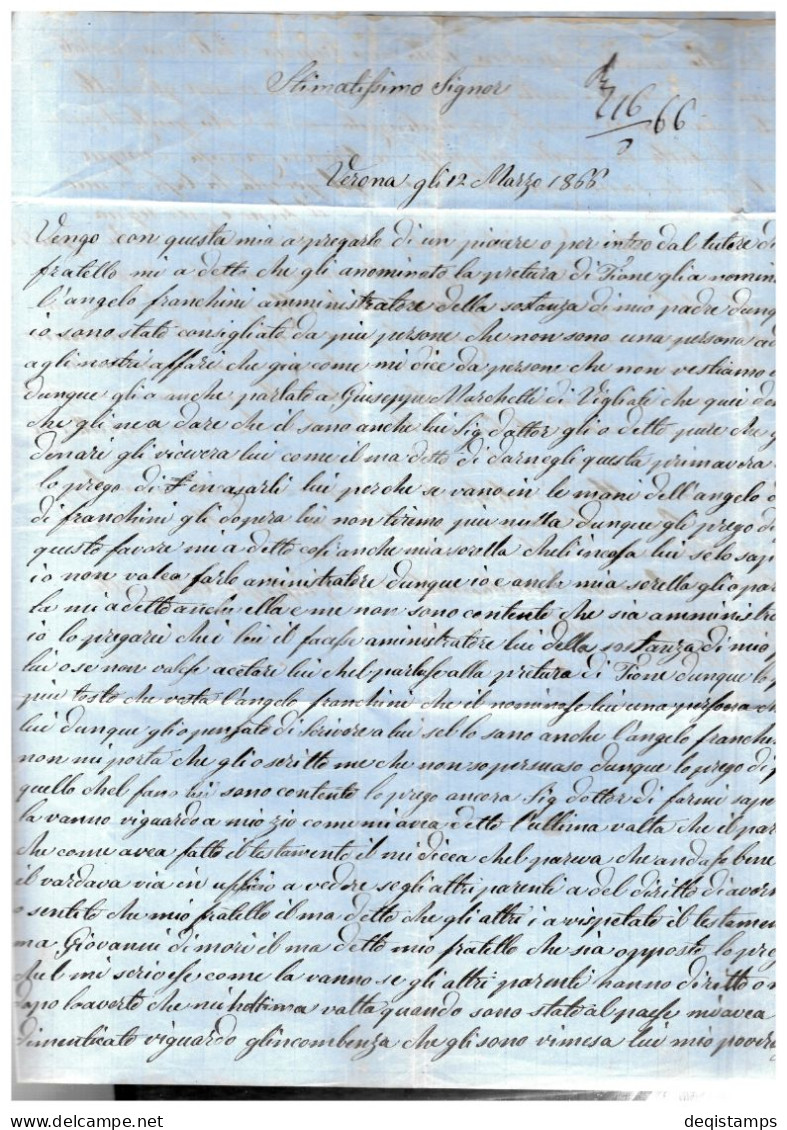 Stimatissimo Signor
16/3 66
Verona gli 12 Marzo 1866
Vengo con questa mia a pregarlo di un piacere o per inteso dal tutore di
fratello mi a detto che gli anominato la pretura di Tione gli a nomin
l'angelo franchini amministratore della sostanza di mio padre dunq
io sono stato consigliato da piu persone che non sono una persona ad
agli nostri affari che gia come mi dice da persone che non vestiamo
dunque gli o anche parlato a Giuseppe Marchetti di Vigliati che qui de
che gli ne a dare che il sano anche lui Sig dottor gli o detto pure che g
denari gli ricevera lui come il ma detto di darnegli questa primavera
lo prego di incasarli lui perche se vano in le mani dell'angelo
di franchini gli dopera lui non tiremo piu nulla dunque gli prego di
questo favore mi a detto cosi anche mia sorella cheli incasa lui se lo sap
io non valea farlo aministratore dunque io e anche mia sorella gli o par
la mi a detto anche ella e me non sono contente che sia amministr
io lo pregarei che lui il facese aministratore lui della sostanza di mio p
lui o se non valese acetare lui chel parlase alla pretura di Tione dunque lo p
piu tosto che resta l'angelo franchini che il nominase lui una persona
lui dunque gli o pensato di scrivere a lui seblo sano anche l'angelo franch
non mi porta che gli o scritto me che non so persuaso dunque lo prego di
quello chel fano lui sono contento lo prego ancora Sig dottor di farmi sape
la vanno riguardo a mio zio come mi avea detto l'ultima valta che il par
che come avea fatto il testamento il mi dicea chel pareva che andase bene
il vardava via in uffizio a vedere se gli altri parenti a del diritto di avern
o sentito che mio fratello il ma detto che gli altri i a rispetato il testamen
ma Giovanni di mori il ma detto mio fratello che sia opposto lo preg
chel mi scrivese come la vanno se gli altri parenti hanno diritto o n
dapo loaverto che nelhottima valta quando sono stato al paese mi avea
dimenticato riguardo glincombenza che gli sono rimesa lui mio povere
deqistamps